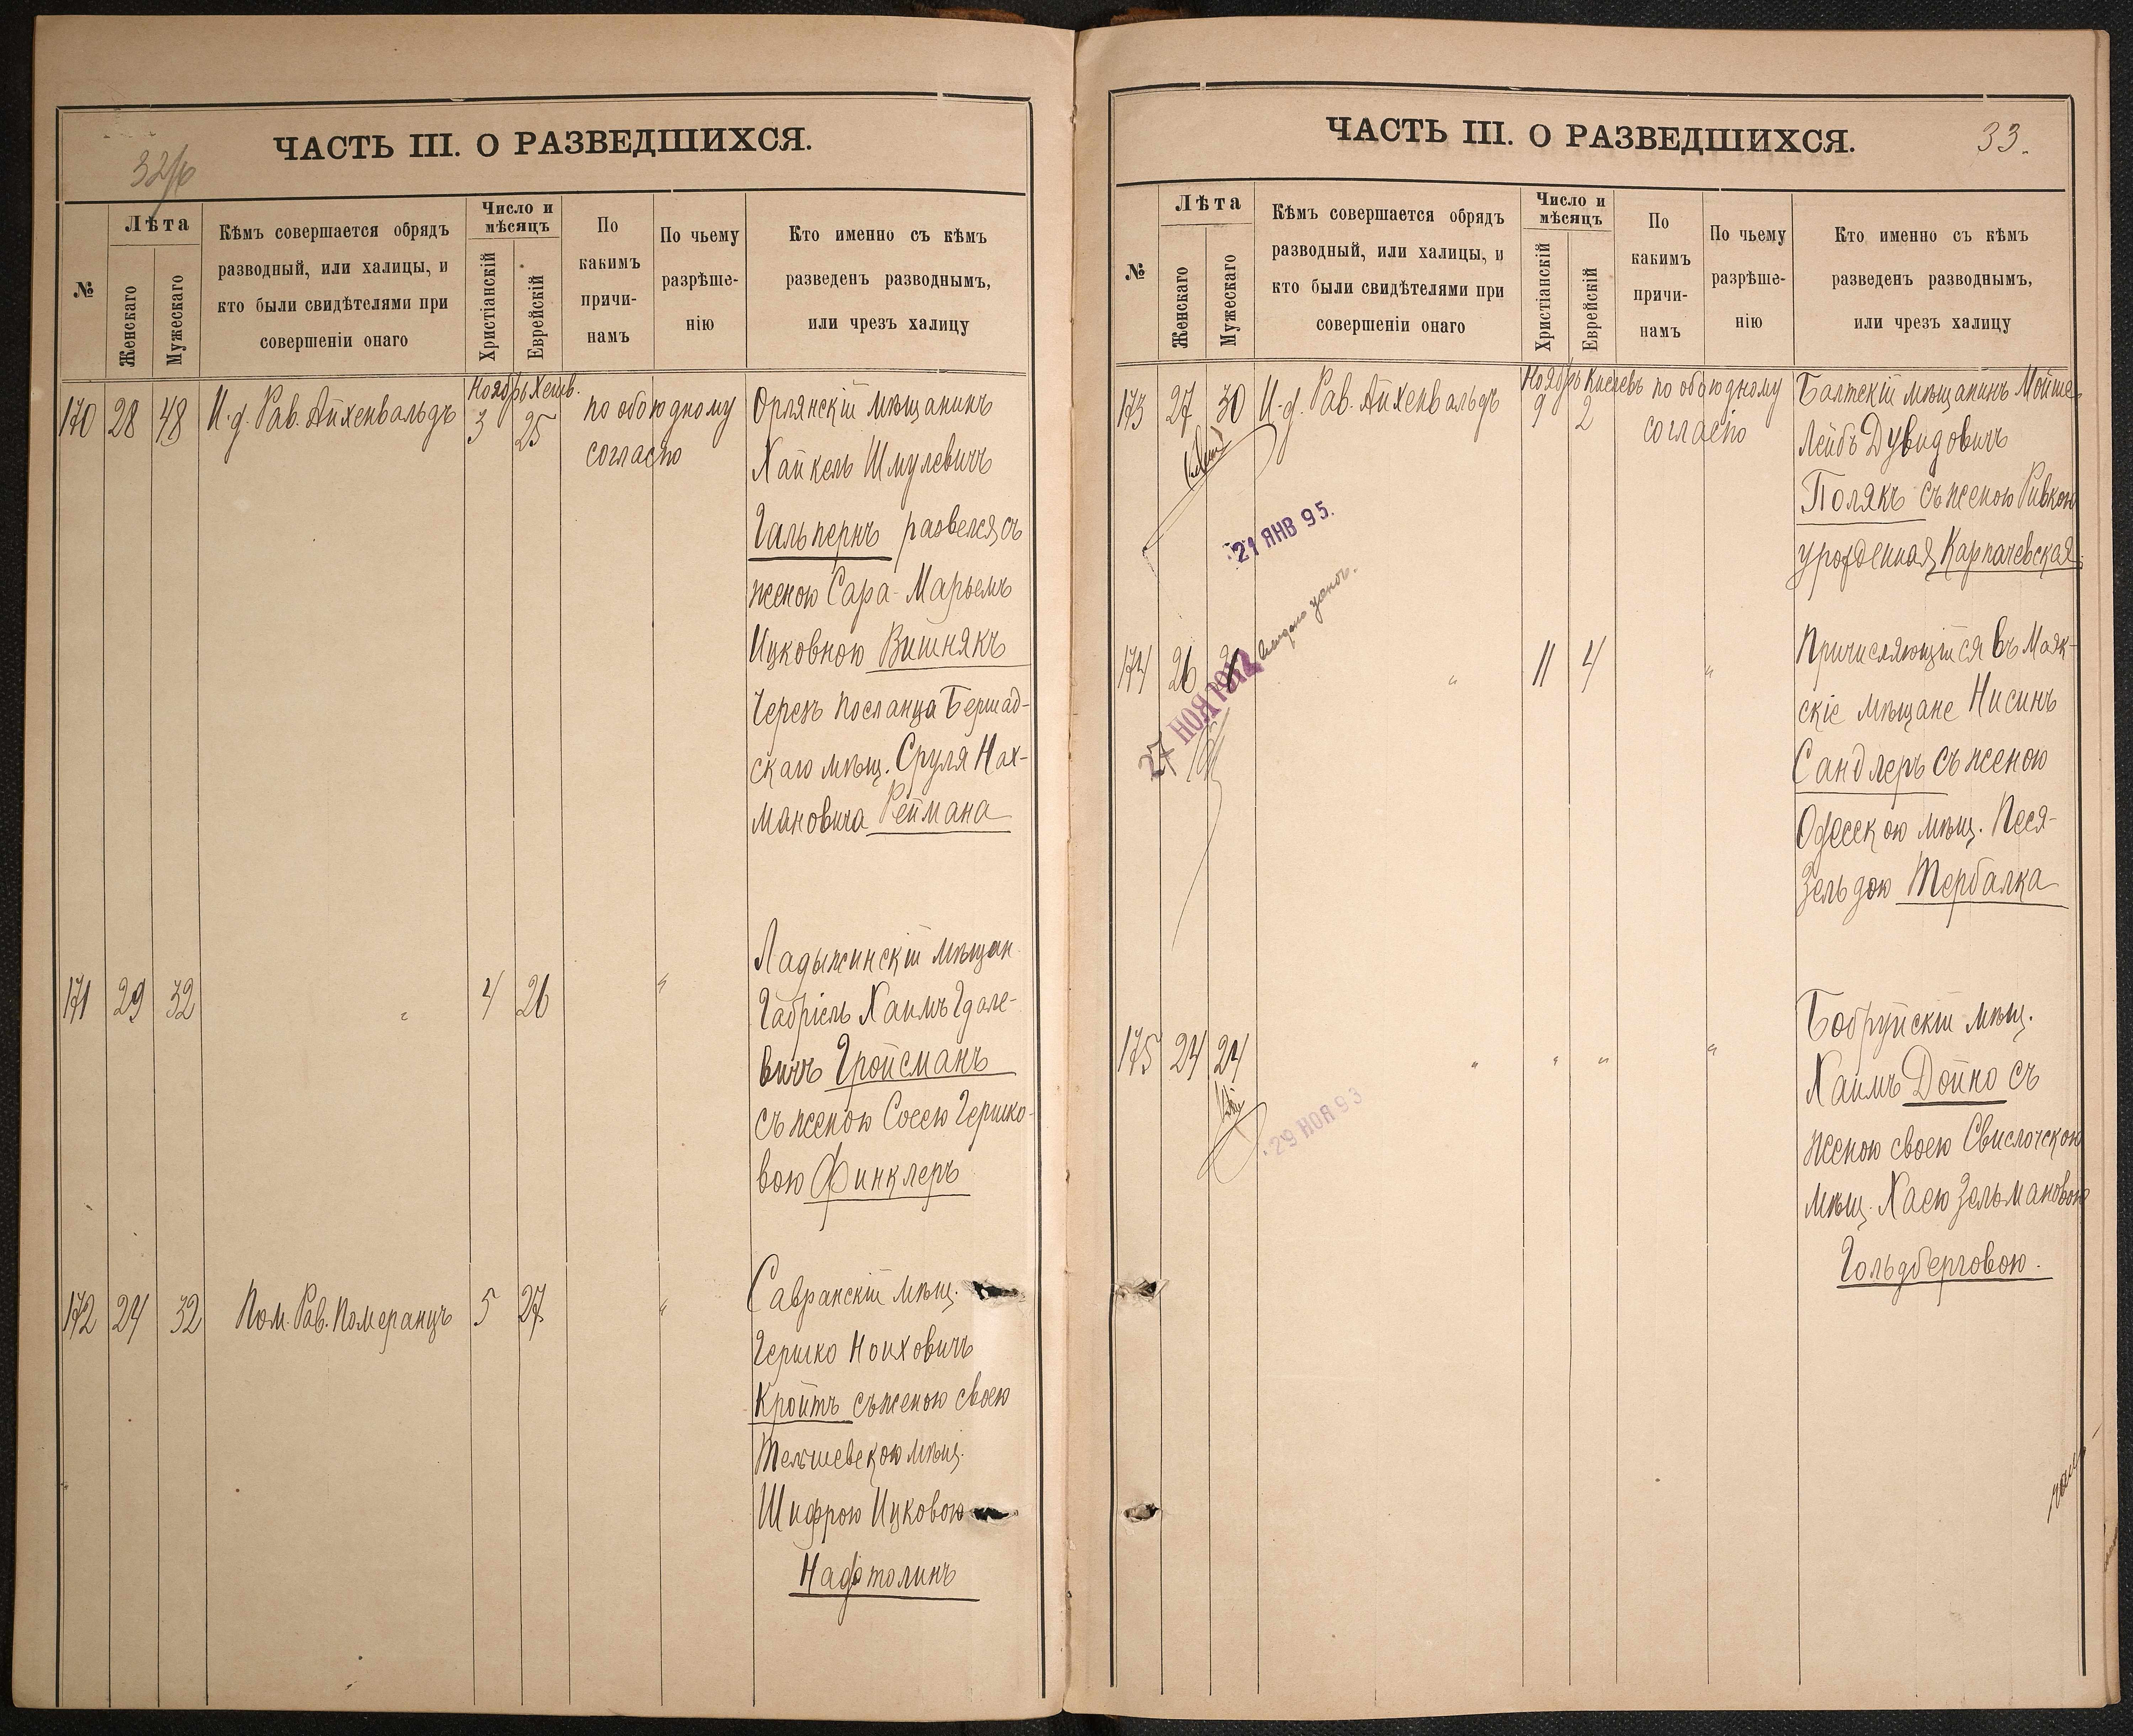 ЧАСТЬ III. О РАЗВЕДШИХСЯ.
32/б
№
Лѣта
Женскаго
Мужескаго
Кѣмъ совершается обрядъ
разводный, или халицы, и
кто были свидѣтелями при
совершеніи онаго
Число и
мѣсяцъ
Христіанскій
Еврейскій
По
какимъ
причи-
намъ
По чьему
разрѣше-
нію
Кто именно съ кѣмъ
разведенъ разводнымъ,
или чрезъ халицу
Ноябрь Хешв.
170 28 48 И.д. Рав. Айхенвальдъ 3 25 по обоюдному Орлянскій мѣщанинъ
согласію Хайкель Шмулевичъ
Гальпернъ развелся съ
женою Сара-Марьемъ
Ицковною Вишнякъ
Черезъ посланца Бершад-
скаго мѣщ. Сруля Нах-
мановича Реймана
Ладыжинскій мѣщан.
171 29 32 " 4 26 " Габріель Хаимъ Гдале-
вичъ Гройсманъ
съ женою Сосею Гершко-
вою Финклеръ
Савранскій мѣщ.
172 24 32 Пом. Рав. Померанцъ 5 27 "
Гершко Ноиховичъ
Кройтъ съ женою своею
Тельшевскою мѣщ.
Шифрою Ицковою
Нафтолинъ
ЧАСТЬ III. О РАЗВЕДШИХСЯ.
33.
№
Лѣта
Женскаго
Мужескаго
Кѣмъ совершается обрядъ
разводный, или халицы, и
кто были свидѣтелями при
совершеніи онаго
Число и
мѣсяцъ
Христіанскій
Еврейскій
По
какимъ
причи-
намъ
По чьему
разрѣше-
нію
Кто именно съ кѣмъ
разведенъ разводнымъ,
или чрезъ халицу
Ноябрь Кислевъ
173 27 30 И.д. Рав. Айхенвальдъ 9 2 по обоюдному Балтскій мѣщанинъ Мойше-
согласію Лейбъ Дувидовичъ
Полякъ съ женою Ривкою
урожденная Карпачевская
21 ЯНВ 95.
Причисляющійся въ Маяк-
174 26 " 11 4 "
скіе мѣщане Нисинъ
27 НОЯ 1912
Сандлеръ съ женою
Одесскою мѣщ. Песя-
Зельдою Тербалка
Бобруйскій мѣщ.
175 24 24 " " " "
Хаимъ Дойно съ
29 НОЯ 93
женою своею Свислочскою
мѣщ. Хаею Зельмановою
Гольдберговою.